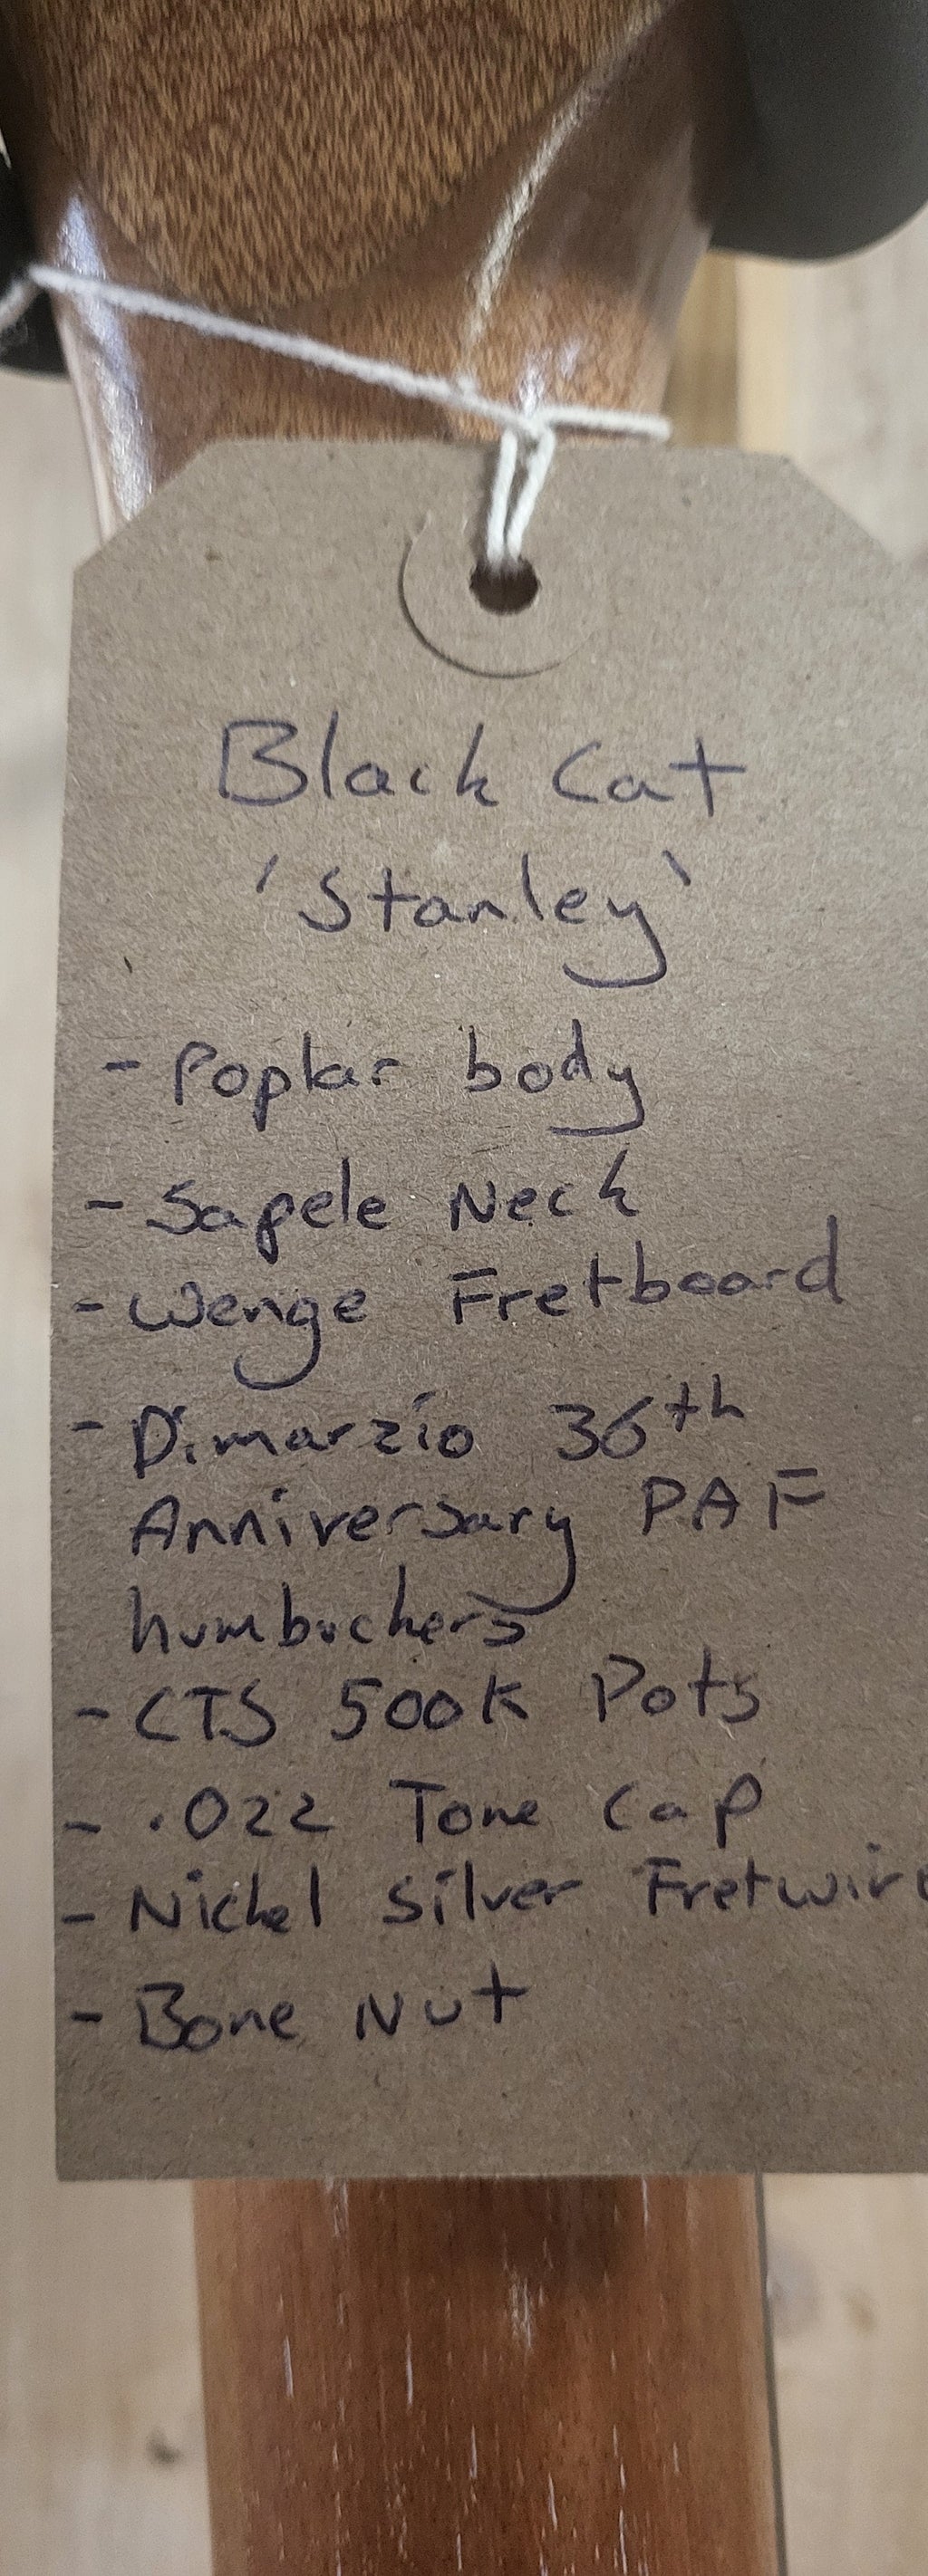 Black Cat
'Stanley'
- Poplar body
- Sapele Neck
- Wenge Fretboard
- Dimarzio 36th
Anniversary PAF
humbuckers
- CTS 500K Pots
- .022 Tone Cap
- Nickel Silver Fretwire
- Bone Nut